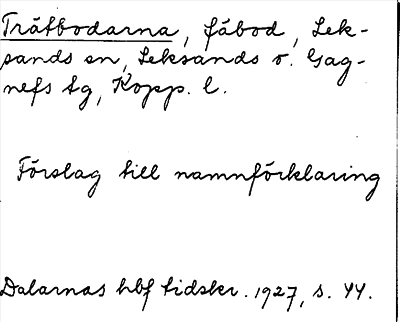 Tråtbodarna, fäbod, Lek-
sands sn, Leksands o. Gag-
nefs tg, Kopp. l.
Förslag till namnförklaring
Dalarnas hbf tidskr. 1927, s. 44.